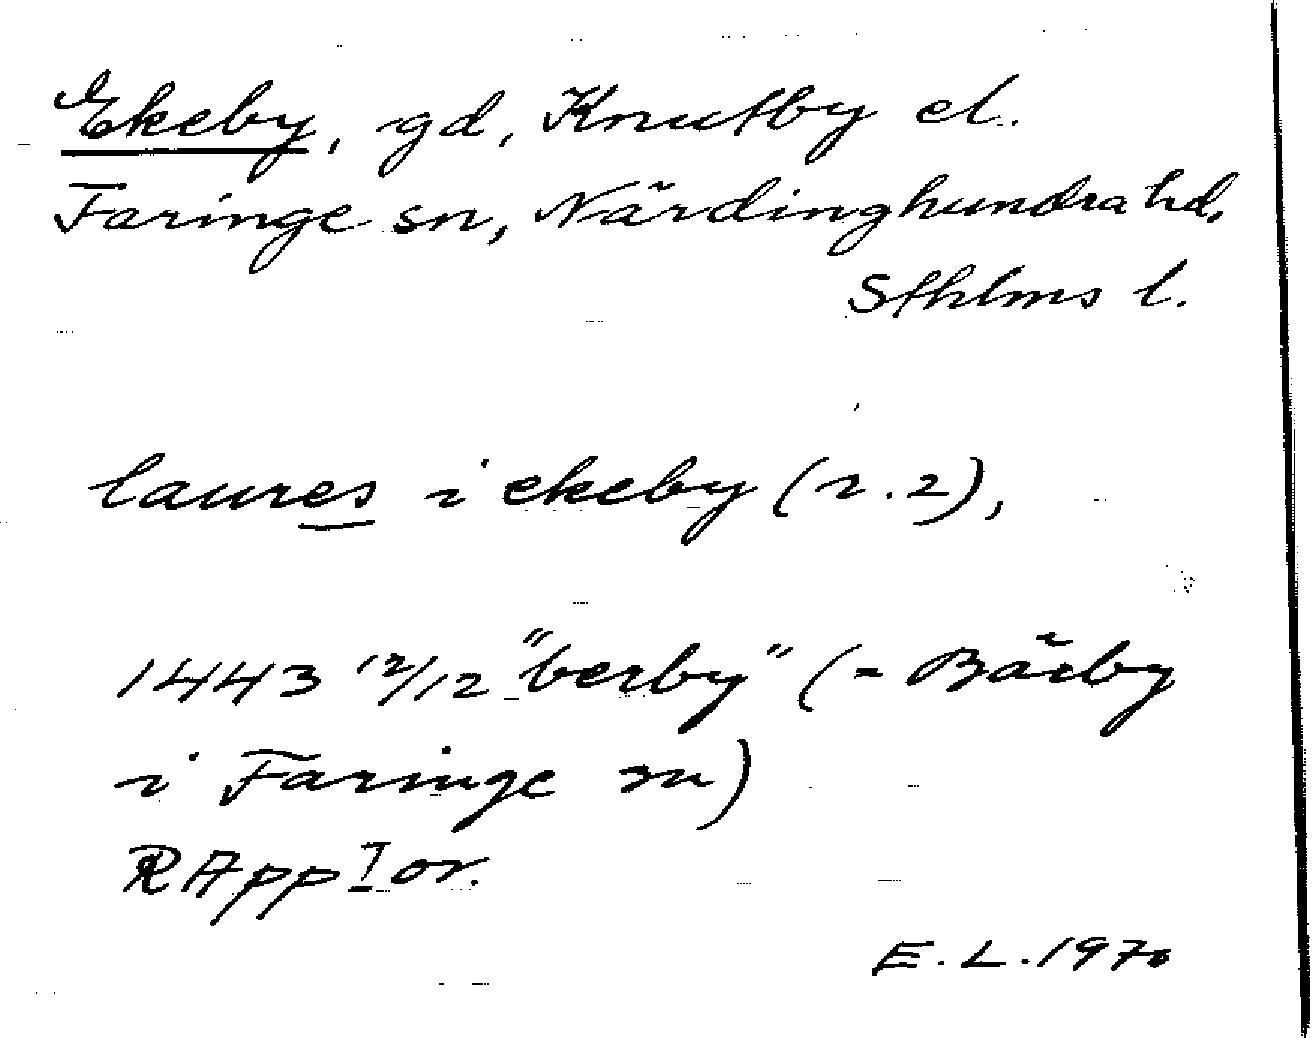 Ekeby, gd, Knutby el.
Faringe sn, Närdinghundra hd,
Sthlms l.
laures i ekeby (r. 2),
1443 12/12 "berby" (= Bärby
i Faringe sn)
RApp I or.
E. L. 1970